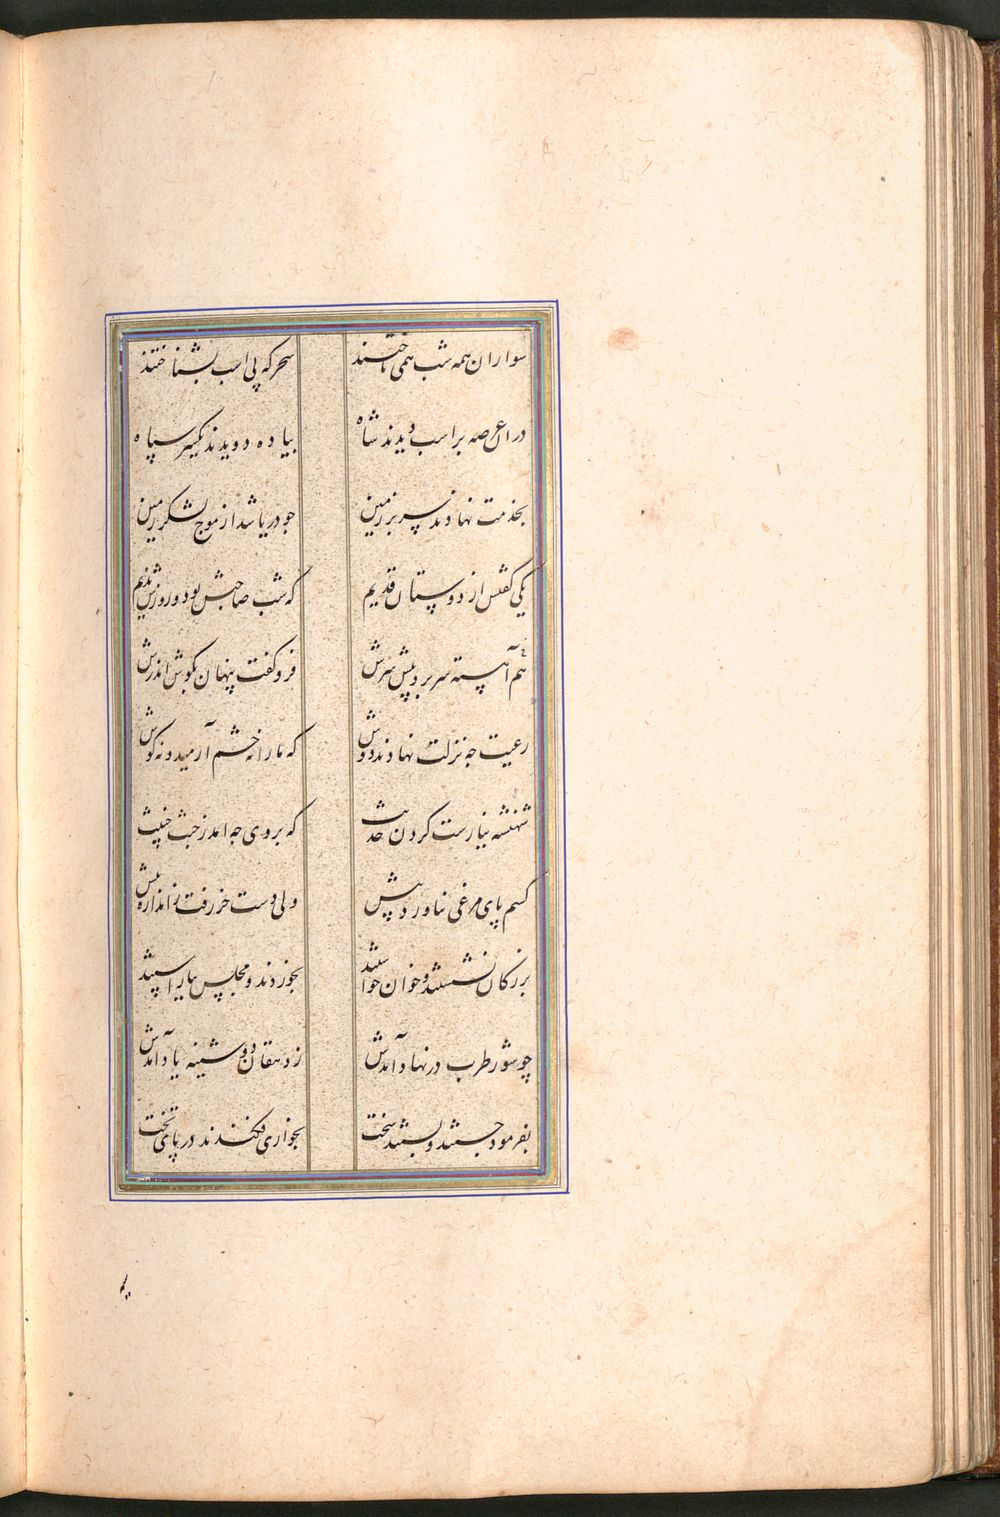 سواران همه شب همی تاختند سحرگه پی اسب بشناختند
دران عرصه بر اسب دیدند شاه پیاده دویدند یکسر سپاه
بخدمت نهادند سر بر زمین چو دریا شد از موج لشکر زمین
یکی گفتش از دوستان قدیم که شب حاجبش بود و روزش ندیم
هم آهسته سر برد پیش سرش فرو گفت پنهان بگوش اندرش
رعیت چه نزلت نهادند دوش که ما را نه خشم آرمید و نه گوش
شهنشه نیارست کردن حدیث که بروی چه آمد ز خبث خبیث
کسم پای مرغی نیاورد پیش ولی دست خر رفت ز اندازه بیش
بزرگان نشستند و خوان خواستند بخوردند و مجلس بیاراستند
چو شور طرب در نهاد آمدش ز دهقان دوشینه یاد آمدش
بفرمود جستند و بستند سخت بخواری فکندند در پای تخت